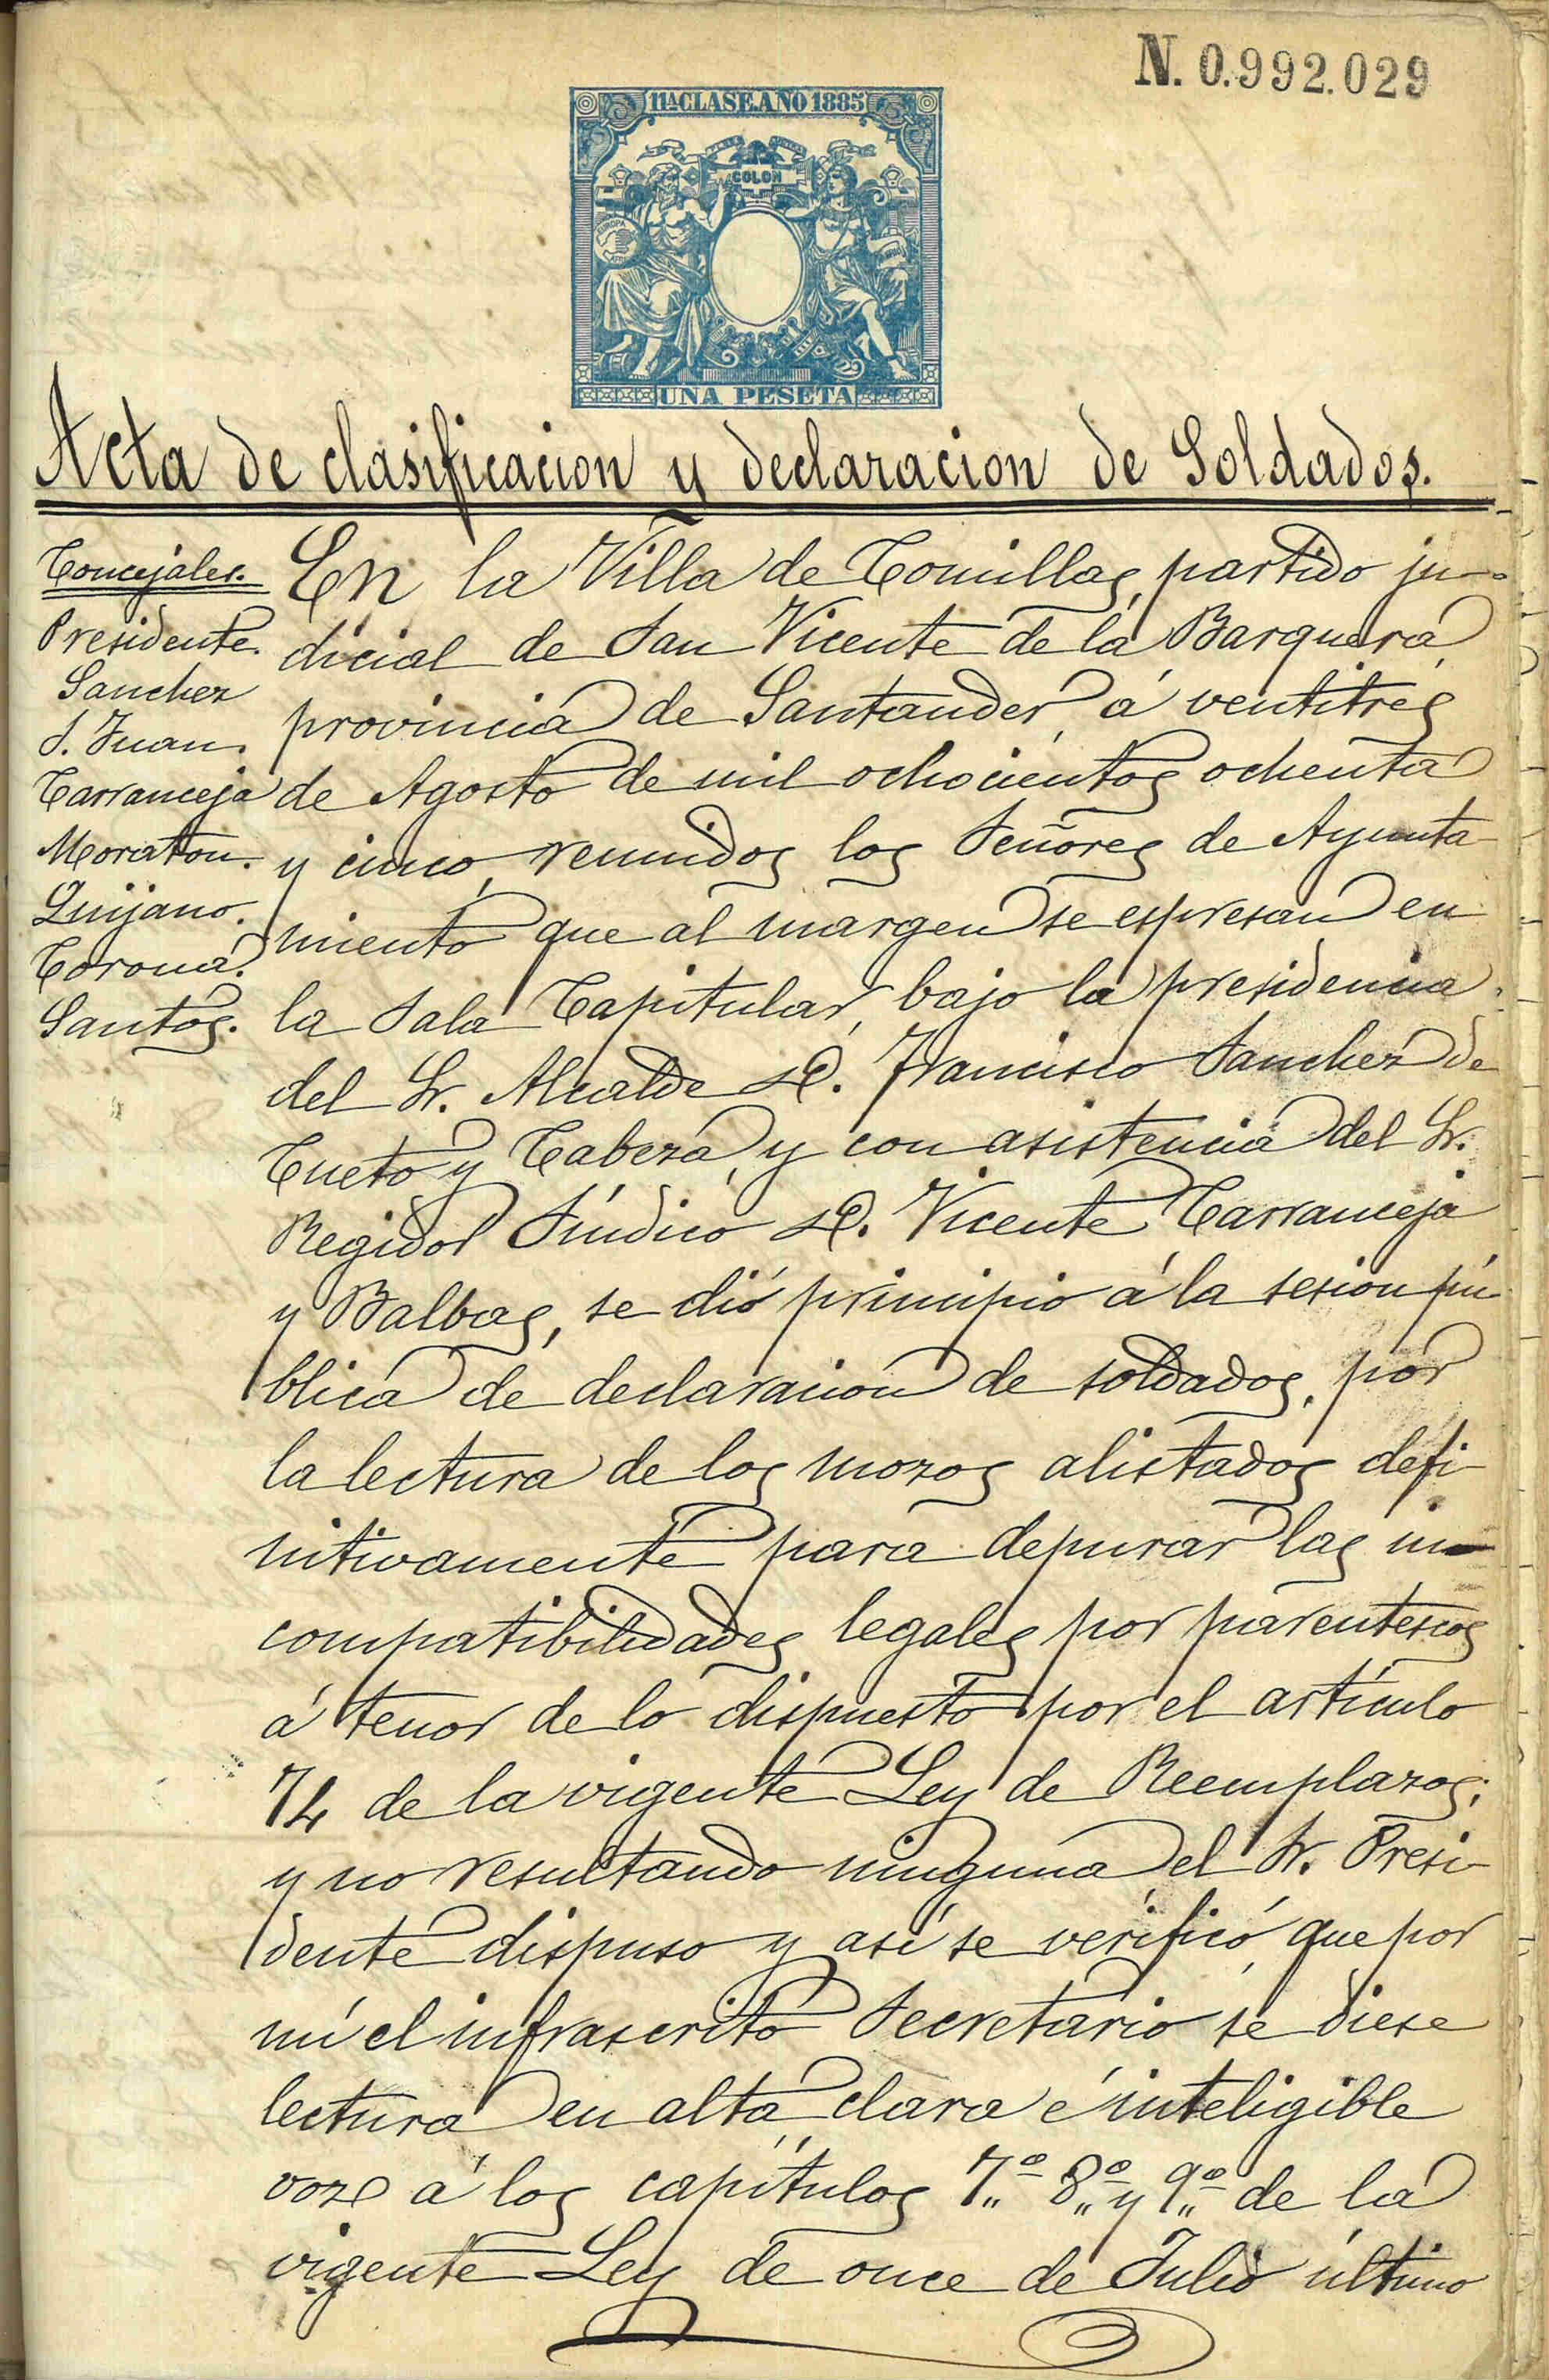 N. 0.992.029
11ª CLASE. AÑO 1885
COLON
EUROPA
UNA PESETA
Acta de clasificacion y declaracion de Soldados.
Concejales.
Presidente.
Sanchez
S. Juan.
Carranceja
Moraton.
Quijano.
Corona.
Santos.
En la Villa de Comillas, partido ju-
dicial de San Vicente de la Barquera,
provincia de Santander, á ventitres
de Agosto de mil ochocientos ochenta
y cinco, reunidos los Señores de Ayunta-
miento que al margen se espresan en
la Sala Capitular, bajo la presidencia
del Sr. Alcalde D. Francisco Sanchez de
Cueto y Cabeza, y con asistencia del Sr.
Regidor Síndico D. Vicente Carranceja
y Balbas, se dió principio á la sesion pú-
blica de declaracion de soldados, por
la lectura de los mozos alistados defi-
nitivamente para depurar las in-
compatibilidades legales por parentescos
á tenor de lo dispuesto por el artículo
74 de la vigente Ley de Reemplazos;
y no resultando ninguna el Sr. Presi-
dente dispuso y así se verificó, que por
mí el infrascrito Secretario se diese
lectura en alta, clara é inteligible
voz á los capítulos 7.º 8.º y 9.º de la
vigente Ley de once de Julio último